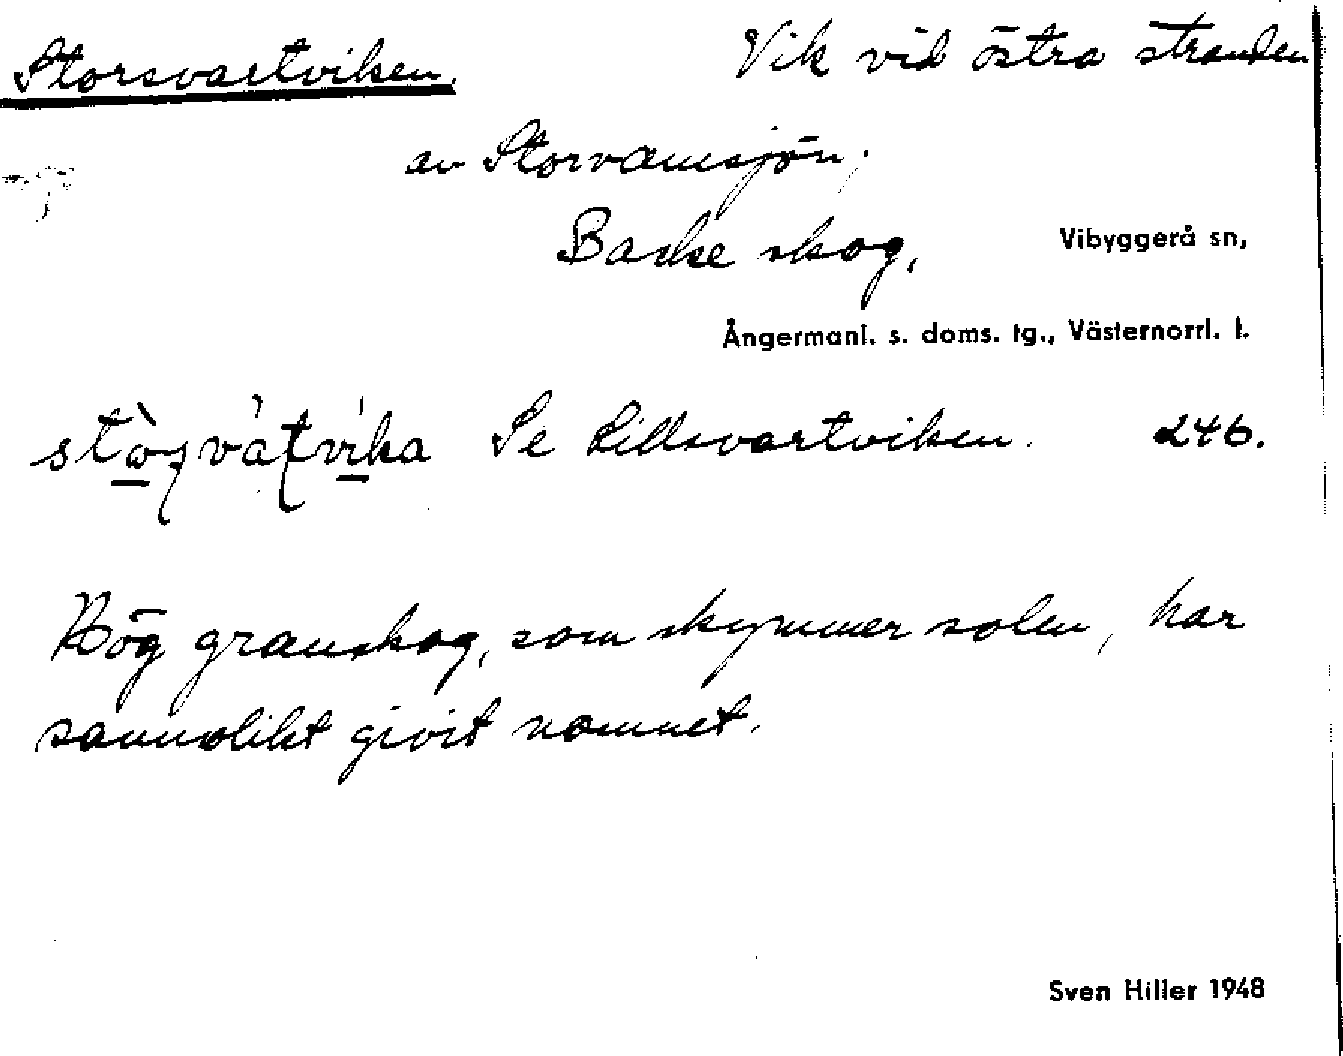 Storsvartviken. Vik vid östra stranden
av Storvamsjön,
Backe skog, Vibyggerå sn,
Ångermanl. s. doms. tg., Västernorrl. l.
Se Lillsvartviken. 246.
Hög granskog, som skymmer solen, har
sannolikt givit namnet.
Sven Hiller 1948